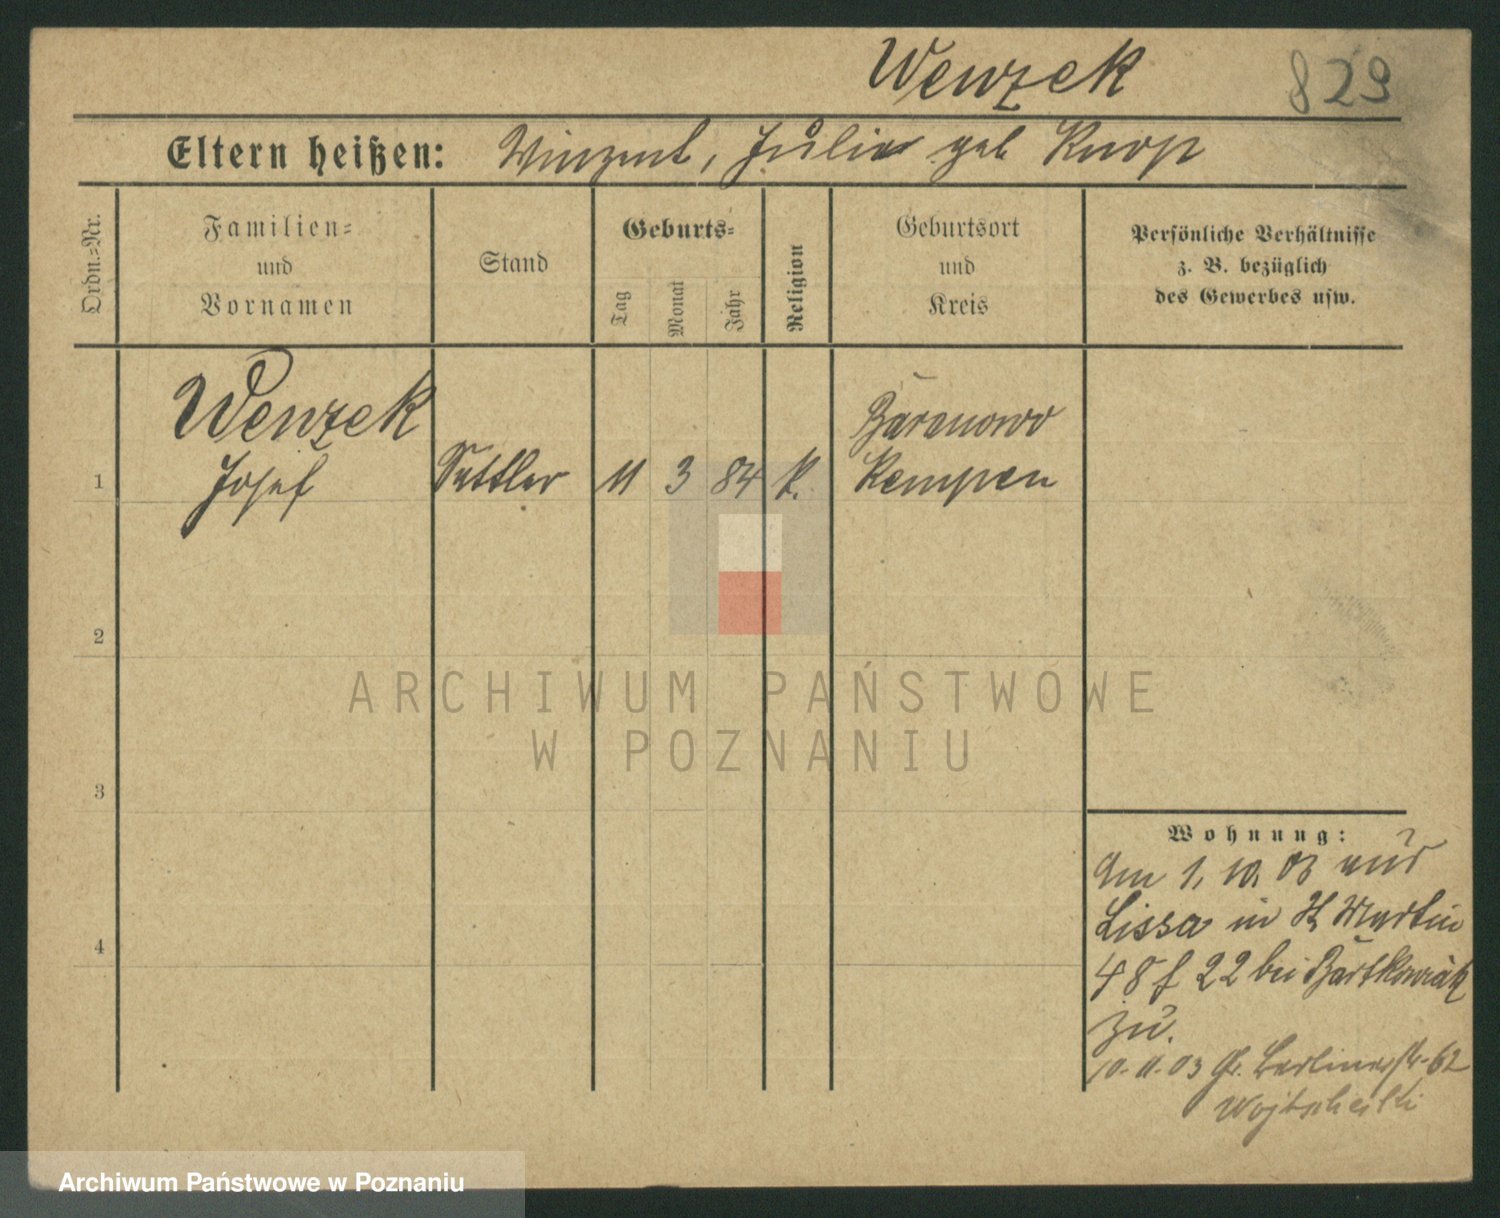 Wenzek 829
Eltern heißen: Winzent, Julie geb Knop
Ordn.=Nr.
Familien=
und
Vornamen
Stand
Geburts=
Tag
Monat
Jahr
Religion
Geburtsort
und
Kreis
Persönliche Verhältnisse
z. B. bezüglich
des Gewerbes usw.
1
Wenzek
Josef
Sattler
11
3
84
k.
Baranowo
Kempen
2
3
4
Wohnung:
Am 1. 10. 03 aus
Lissa in St Martin
48 f 22 bei Bartkowiak
zu.
10.11.03 Gr. Berlinerstr. 62
ARCHIWUM PAŃSTWOWE
W POZNANIU
Archiwum Państwowe w Poznaniu